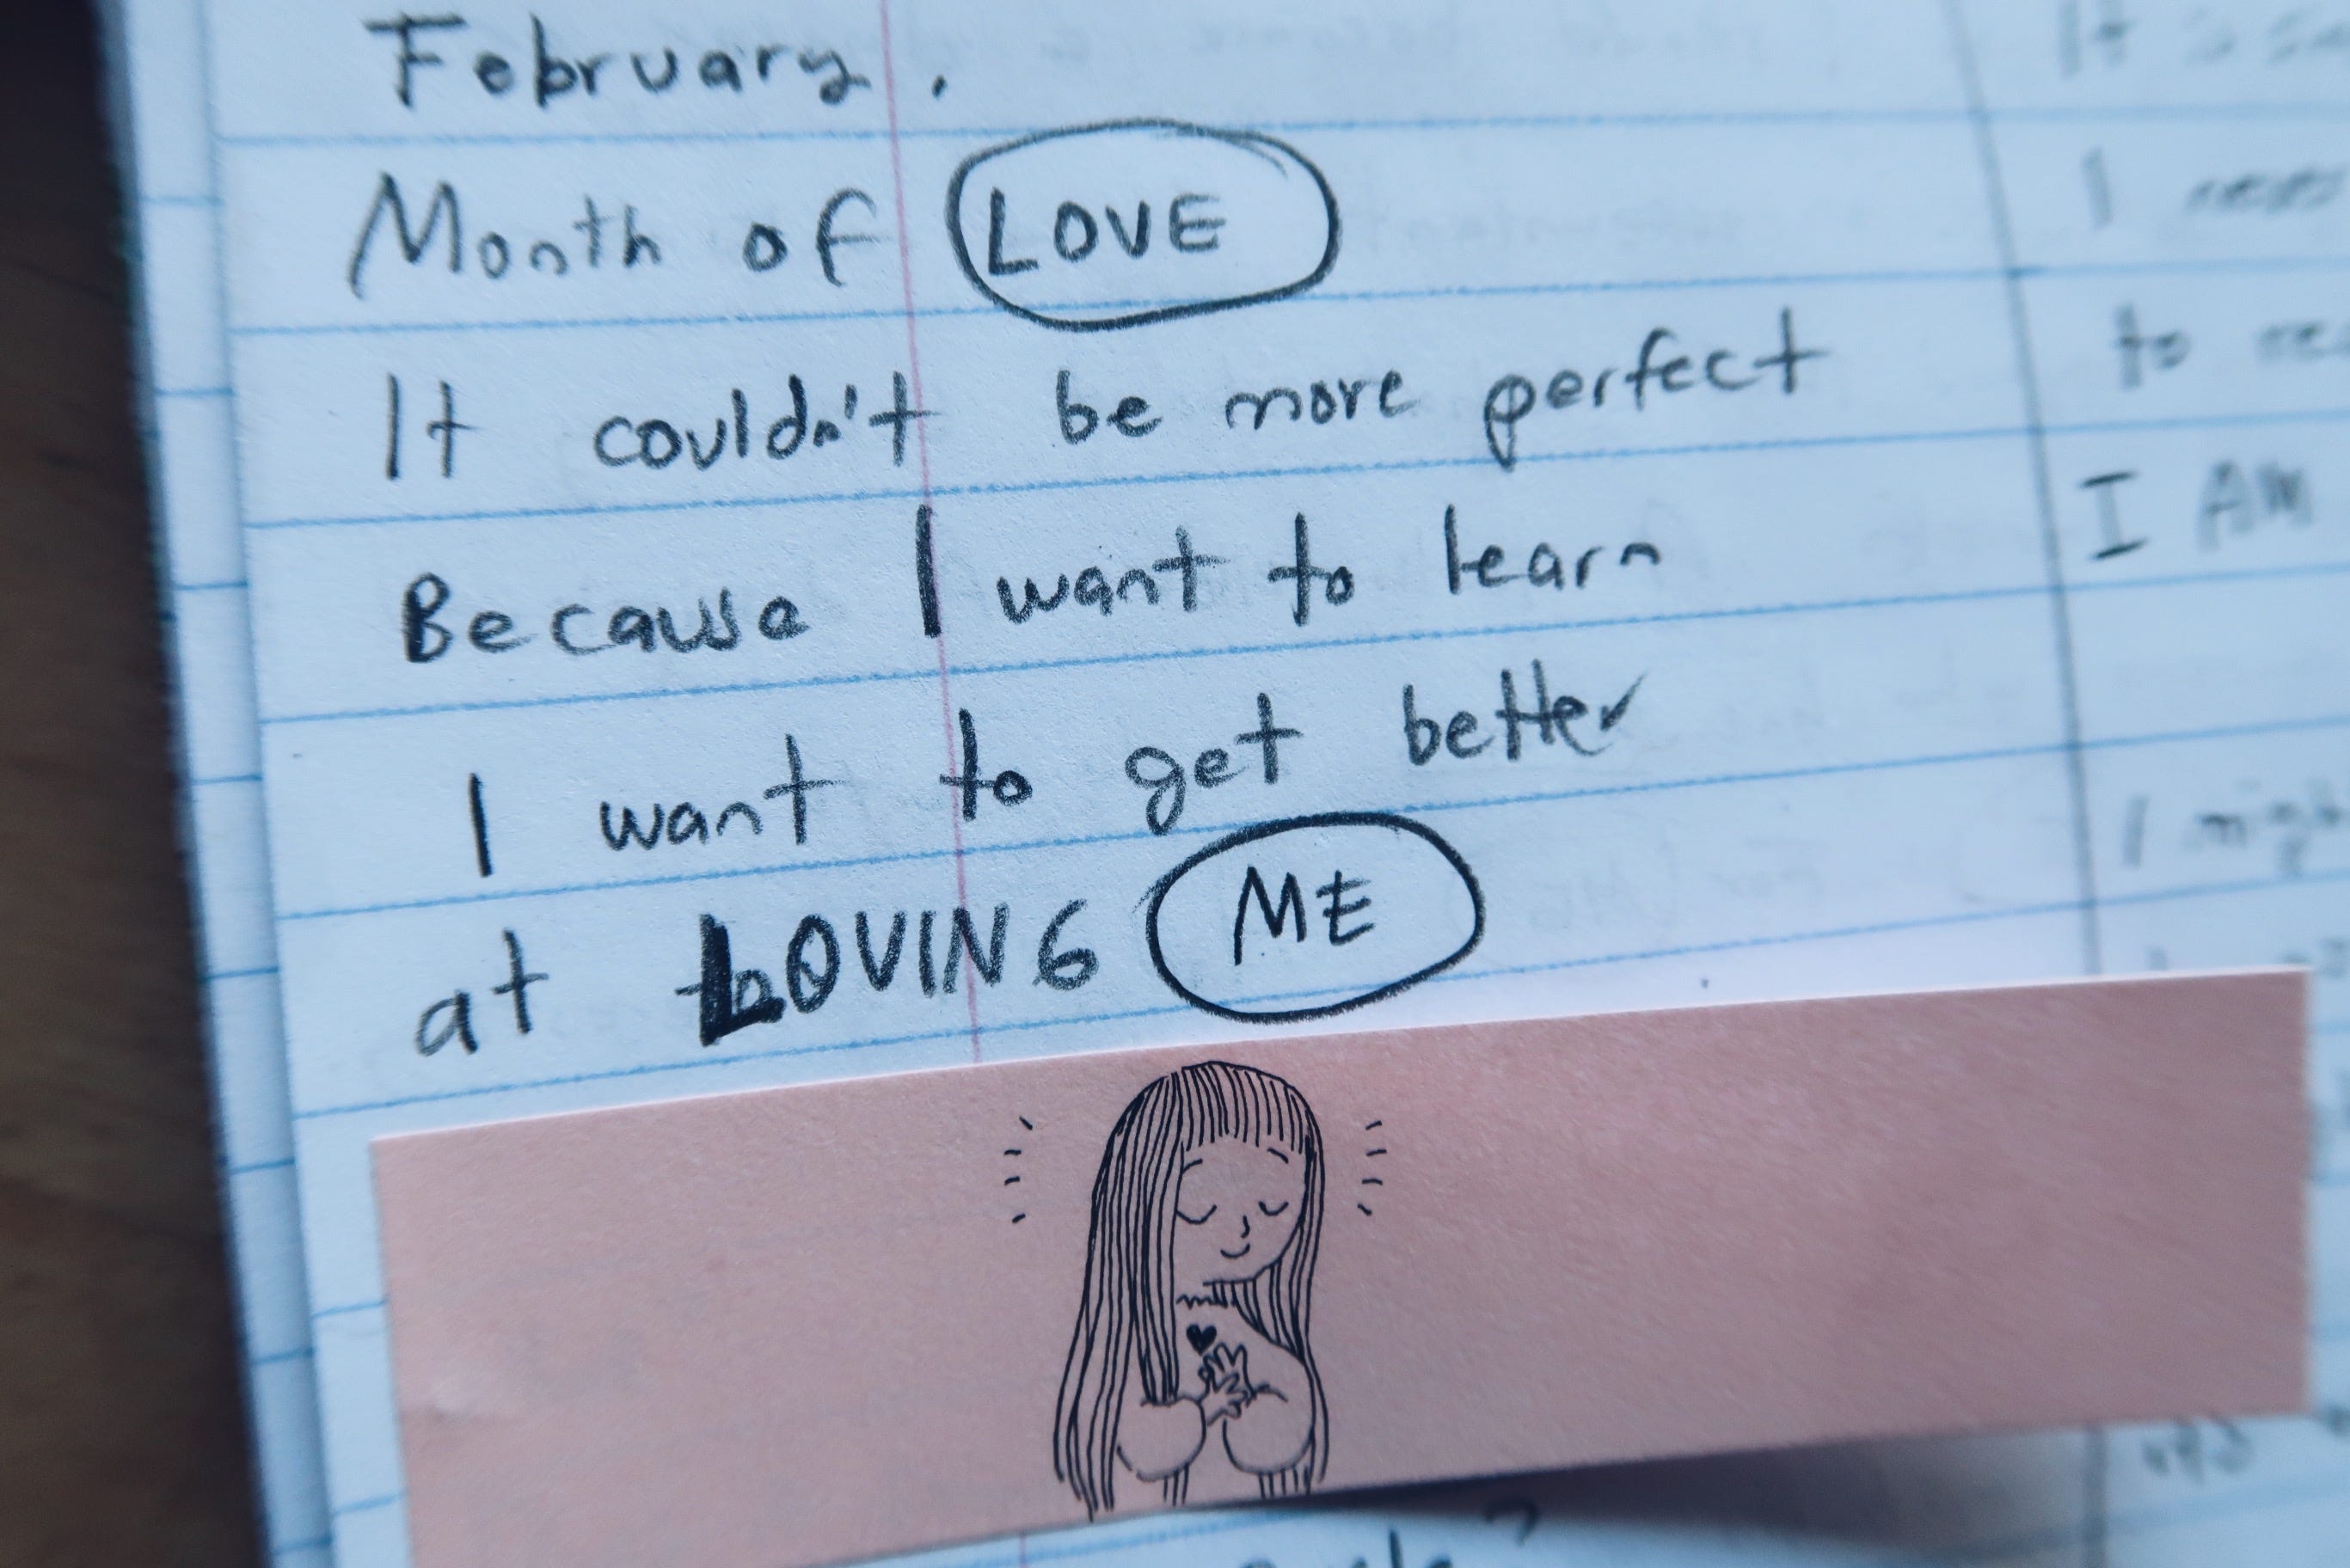 February.
Month of LOVE
It couldn't be more perfect
Because I want to learn
I want to get better
at LOVING ME
I never
to
I AM